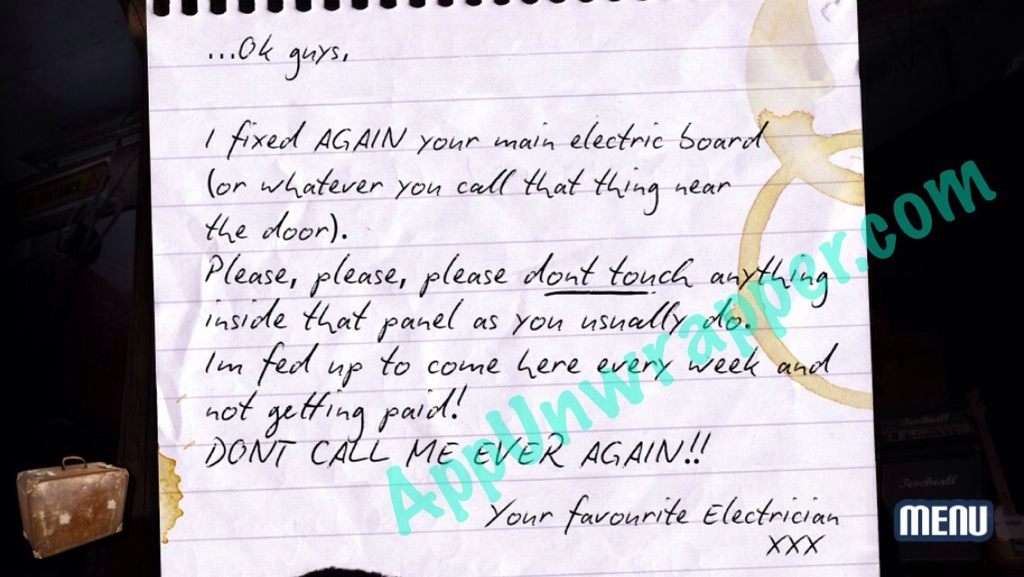 ...Ok guys,
I fixed AGAIN your main electric board
(or whatever you call that thing near
the door).
Please, please, please dont touch anything
inside that panel as you usually do.
Im fed up to come here every week and
not getting paid!
DONT CALL ME EVER AGAIN!!
Your favourite Electrician
XXX
AppUnwrapper.com
MENU